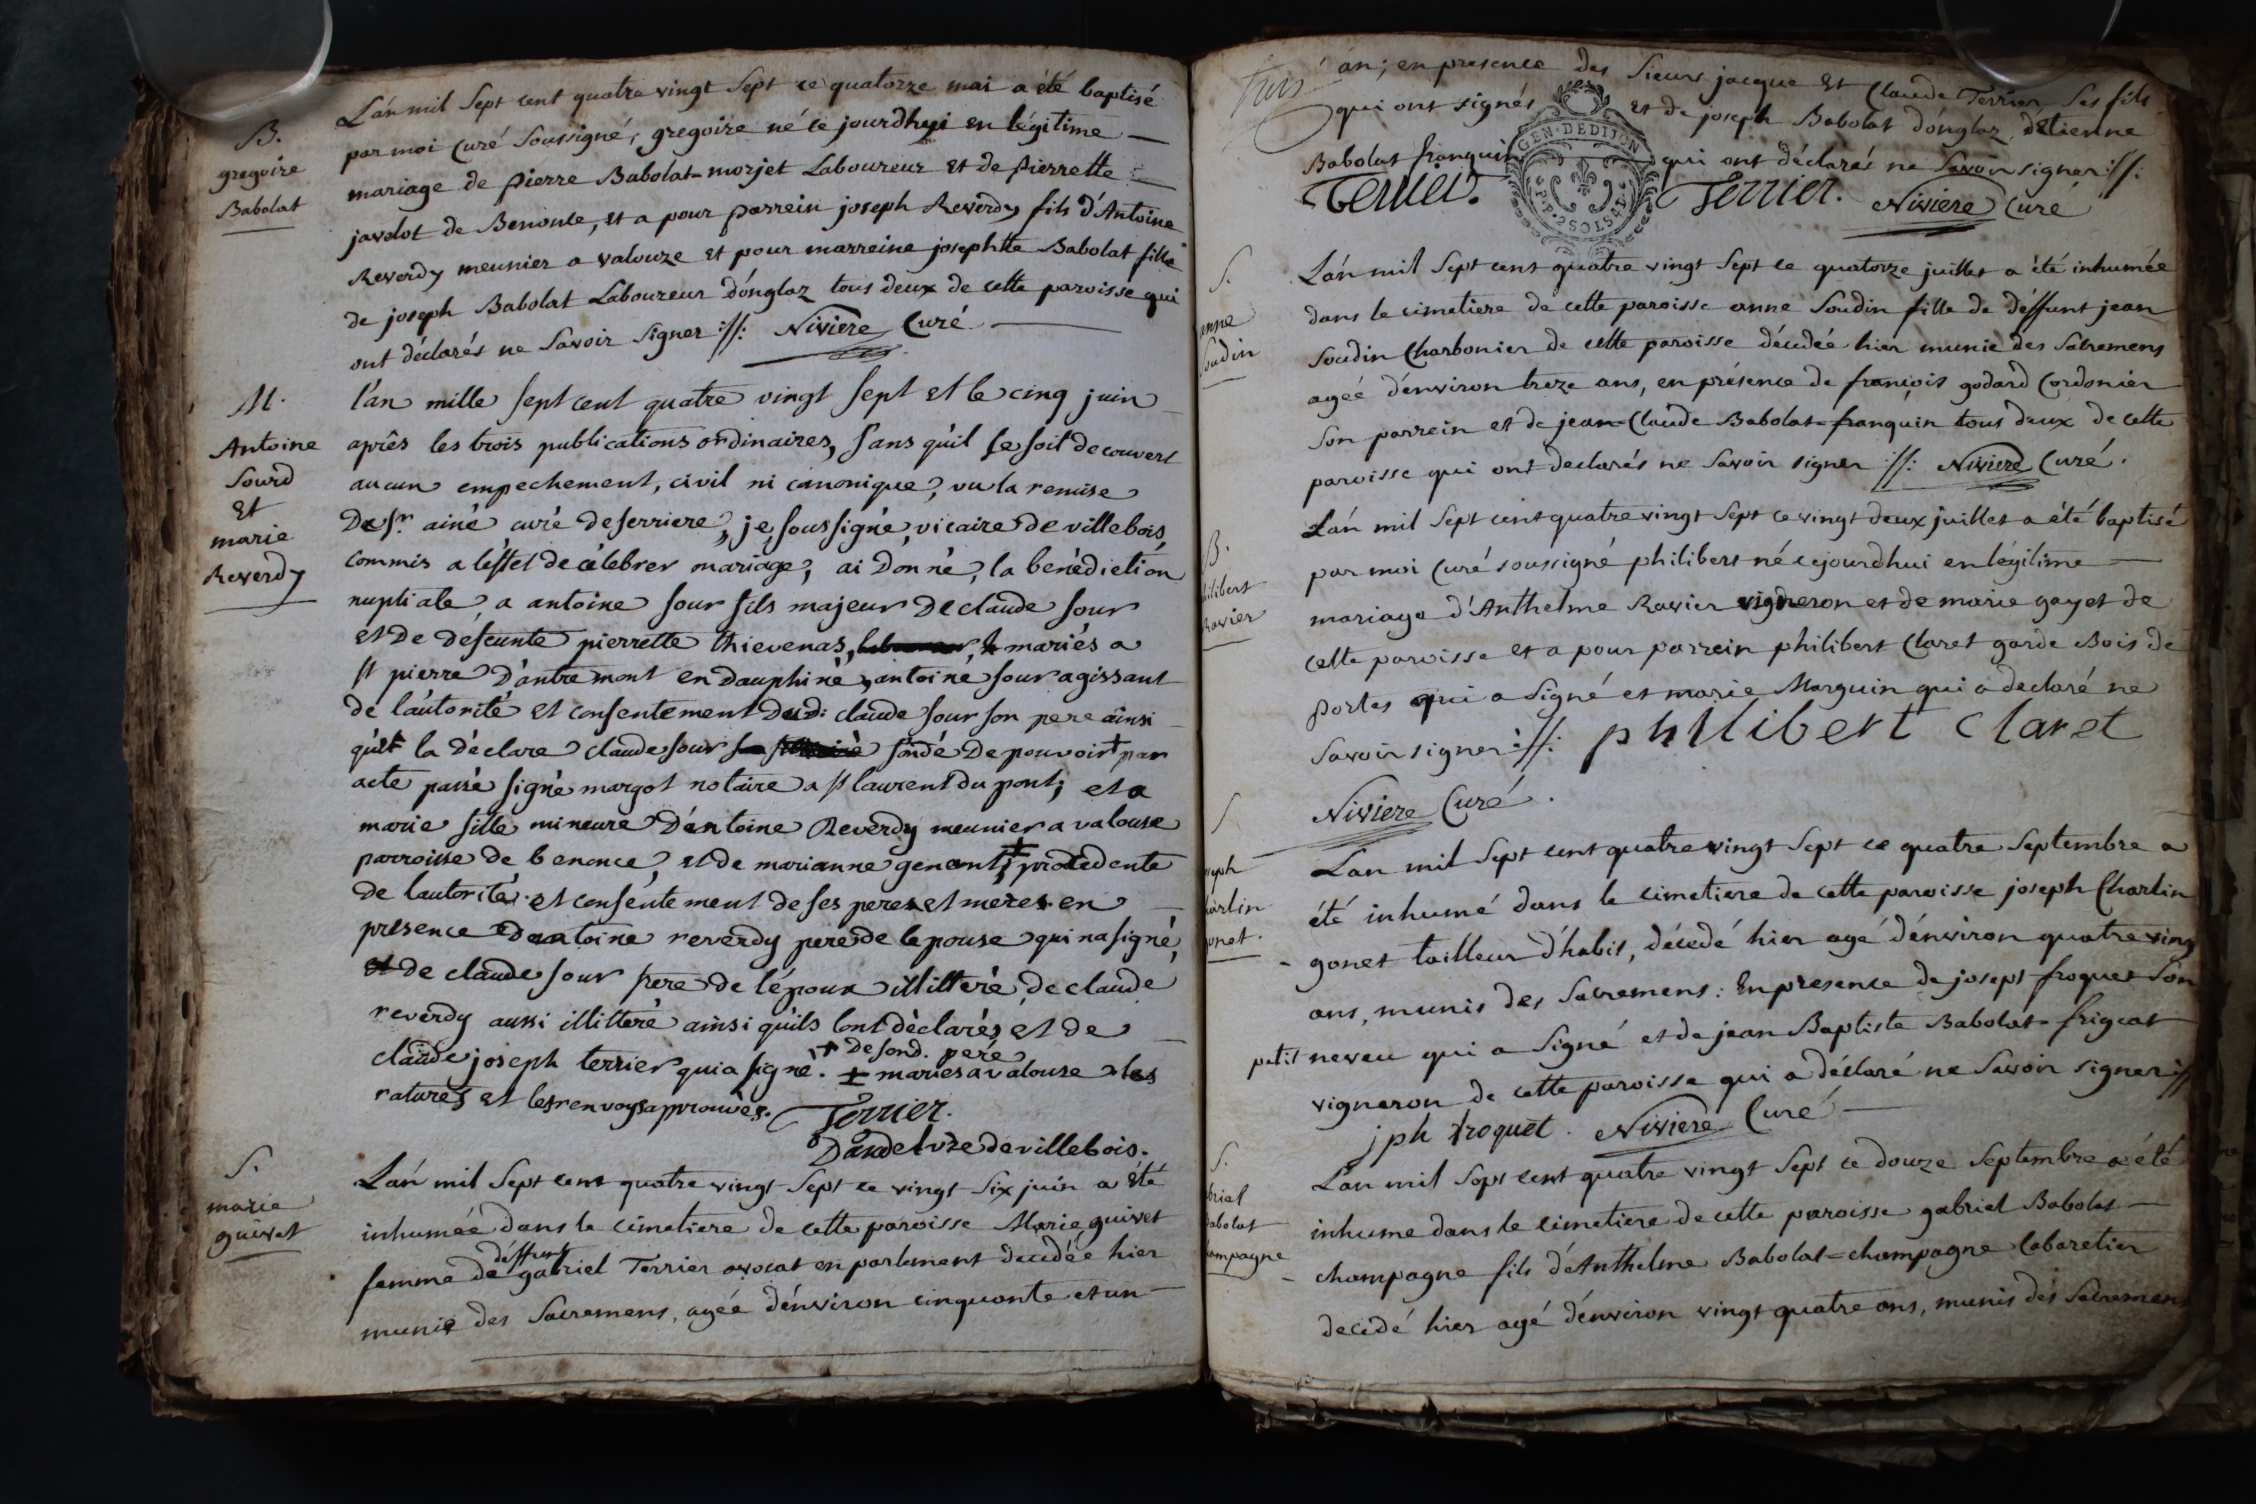 B.
gregoire
Babolat
L'an mil Sept cent quatre vingt Sept ce quatorze mai a été baptisé
par moi Curé Soussigné, gregoire né ce jourdhyi en légitime
mariage de pierre Babolat-morjet Laboureur et de pierrette
javelot de Benonce, et a pour parrein joseph Reverdy fils d'Antoine
Reverdy meunier a valouze et pour marreine josephtte Babolat fille
de joseph Babolat Laboureur d'onglaz tous deux de cette paroisse qui
ont déclarés ne Savoir Signer ://: Niviere Curé
M.
Antoine
Sourd
et
marie
Reverdy
l'an mille sept cent quatre vingt sept et le cinq juin
après les trois publications ordinaires, sans qu'il se soit decouvert
aucun empechement, civil ni canonique, vu la remise
De sr ainé curé deserriere, je soussigné, vicaire de villebois,
commis a l'effet de célebrer mariage, ai Donné, la benédiction
nuptiale a antoine sour fils majeur De claude sour
et De défeunte pierrette thievenas, mariés a
st pierre D'antremont en Dauphiné, antoine sour agissant
de l'autorité et consentement Dudi: claude sour son pere ainsi
qu'il la déclare claude sour fondé De pouvoir + par
acte passé signé margot notaire a st laurent du pont; et a
marie fille mineure D'antoine Reverdy meunier a valouse
parroisse de benonce, et de marianne genant, ‡ procedente
de l'autorité et consentement de ses peres et meres en
presence D'antoine reverdy pere de lepouse qui na signé,
et de claude sour frere de l'époux illitteré, de claude
reverdy aussi illitteré ainsi qu'ils lont déclarés, et de
claude joseph terrier qui a signé. + De sond. pere
‡ mariés a valouse les
ratures et les renvoys aprouvés. Terrier.
Dandeluze de villebois.
S.
marie
guivet
L'an mil Sept cent quatre vingt Sept ce vingt Six juin a été
inhumée dans le cimetiere de cette paroisse Marie guivet
femme de déffunt gabriel Terrier avocat en parlement decedée hier
munie des Sacremens, agée d'environ cinquante et un
an; en presence des Sieurs jacque et Claude Terrier Ses fils
qui ont signés et de joseph Babolat d'onglaz, d'Etienne
Babolat franquin qui ont déclarés ne Savoir signer ://:
GEN. DE DIJON
Terrier. Terrier. Niviere Curé
S.
anne
Soudin
L'an mil Sept cent quatre vingt Sept ce quatorze juillet a été inhumée
dans le cimetiere de cette paroisse anne Soudin fille de déffunt jean
Soudin Charbonier de cette paroisse décédée hier munie des Sacremens
agée d'environ treze ans, en présence de françois godard Cordonier
Son parrein et de jean-Claude Babolat-franquin tous deux de cette
paroisse qui ont declarés ne Savoir signer ://: Niviere Curé.
B.
hilibert
Ravier
L'an mil Sept cent quatre vingt Sept ce vingt deux juillet a été baptisé
par moi Curé soussigné philibert né cejourdhui en légitime
mariage d'Anthelme Ravier vigneron et de marie gayet de
cette paroisse et a pour parrein philibert Claret garde Bois de
portes qui a Signé et marie Marguin qui a declaré ne
Savoir signer ://: philibert Claret
Niviere Curé.
S
seph
harlin
onet.
L'an mil Sept cent quatre vingt Sept ce quatre Septembre a
été inhumé dans le cimetiere de cette paroisse joseph Charlin
gonet tailleur d'habit, décedé hier agé d'environ quatre ving
ans, munis des Sacremens: En presence de josept froquet Son
petit neveu qui a Signé et de jean Baptiste Babolat-frigeat
vigneron de cette paroisse qui a déclaré ne Savoir signer //
jph froquet. Niviere Curé
S.
briel
Babolat
hampagne
L'an mil Sept cent quatre vingt Sept ce douze Septembre a été
inhume dans le cimetiere de cette paroisse gabriel Babolat
champagne fils d'Anthelme Babolat=champagne Cabaretier
decedé hier agé d'environ vingt quatre ans, munis des Sacremens